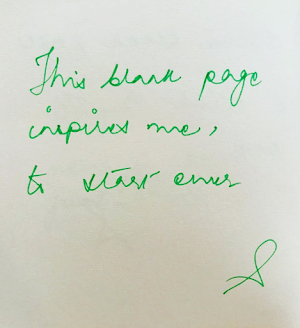 This blank page
inspires me,
to start over
S